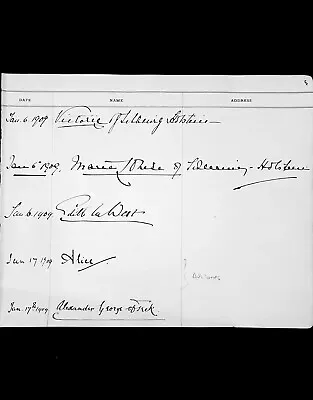 8
DATE NAME ADDRESS
Jan. 6. 1909 Victoria of Schleswig Holstein
Jan 6th 1909. Marie Louise of Schleswig-Holstein
Jan 6. 1909 Edith
Jan 17 1909 Alice
Jan. 17th 1909 Alexander George of Teck